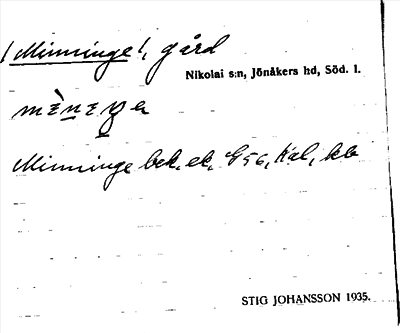 ! Minninge!, gård
Nikolai s:n, Jönåkers hd, Söd. l.
Minninge bek, ek, G56, Kal, kb
STIG JOHANSSON 1935.